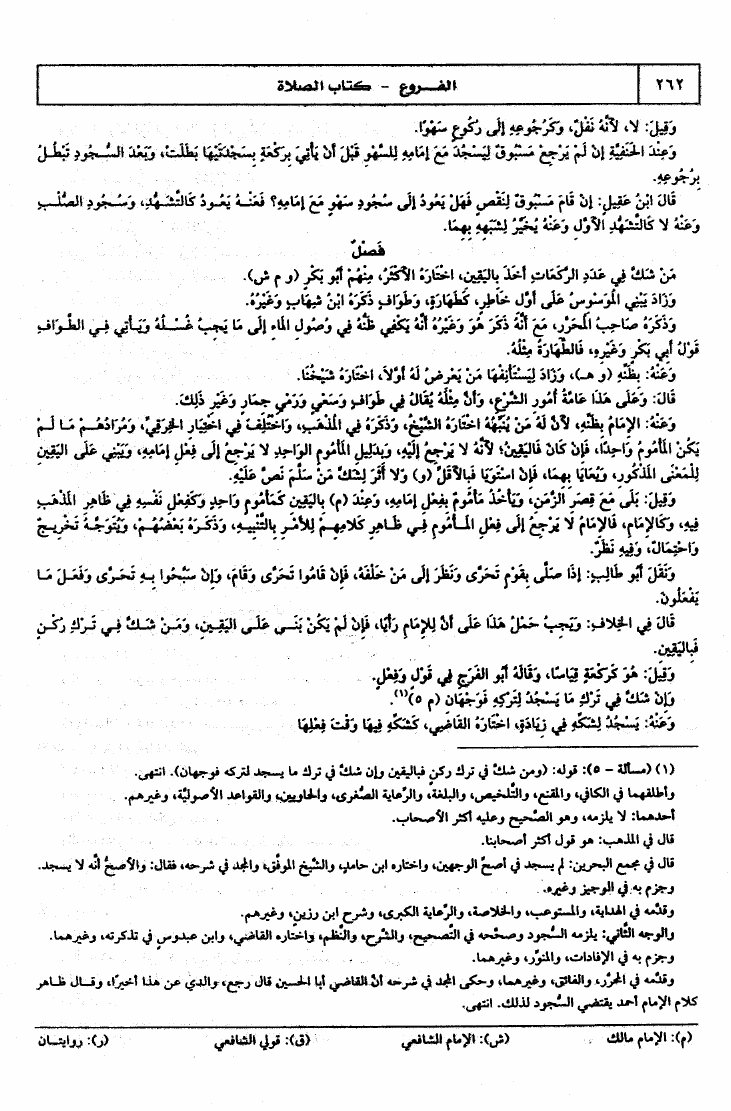 ٢٦٢
الفـــروع - كتاب الصلاة
وَقِيلَ: لا، لأَنَّهُ نَفْلٌ، وَكَرُجُوعِهِ إِلَى رُكُوعٍ سَهْوًا.
وَعِنْدَ الحَنَفِيَّةِ إِنْ لَمْ يَرْجِعْ مَسْبُوقٌ لِيَسْجُدَ مَعَ إِمَامِهِ لِلسَّهْوِ قَبْلَ أَنْ يَأْتِيَ بِرَكْعَةٍ بِسَجْدَتَيْهَا بَطَلَتْ، وَبَعْدَ السُّـجُودِ تَبْطُـلُ
بِرُجُوعِهِ.
قَالَ ابْنُ عَقِيلٍ: إِنْ قَامَ مَسْبُوقٌ لِنَقْصٍ فَهَلْ يَعُودُ إِلَى سُجُودِ سَهْوٍ مَعَ إِمَامِهِ؟ فَعَنْـهُ يَعُـودُ كَالتَّشَهُّدِ، وَسُـجُودِ الصُّلْبِ
وَعَنْهُ لا كَالتَّشَهُّدِ الأَوَّلِ وَعَنْهُ يُخَيَّرُ لِشَبَهِهِ بِهِمَا.
فَصْلٌ
مَنْ شَكَّ فِي عَدَدِ الرَّكَعَاتِ أَخَذَ بِاليَقِينِ، اخْتَارَهُ الأَكْثَرُ، مِنْهُمْ أَبُو بَكْرٍ (و م ش).
وَزَادَ يَبْنِي المُوَسْوِسُ عَلَى أَوَّلِ خَاطِرٍ، كَطَهَارَةٍ، وَطَوَافٍ ذَكَرَهُ ابْنُ شِهَابٍ وَغَيْرُهُ.
وَذَكَرَهُ صَاحِبُ المُحَرَّرِ، مَعَ أَنَّهُ ذَكَرَ هُوَ وَغَيْرُهُ أَنَّهُ يَكْفِي ظَنُّهُ فِي وُصُولِ المَاءِ إِلَى مَا يَجِبُ غَسْـلُهُ وَيَـأْتِي فِـي الطَّـوَافِ
قَوْلُ أَبِي بَكْرٍ وَغَيْرِهِ، فَالطَّهَارَةُ مِثْلُهُ.
وَعَنْهُ: بِظَنِّهِ (و هـ)، وَزَادَ لِيَسْتَأْنِفَهَا مَنْ يَعْرِضُ لَهُ أَوَّلاً، اخْتَارَهُ شَيْخُنَا.
قَالَ: وَعَلَى هَذَا عَامَّةُ أُمُورِ الشَّرْعِ، وَأَنَّ مِثْلَهُ يُقَالُ فِي طَوَافٍ وَسَعْيٍ وَرَمْيِ جِمَارٍ وَغَيْرِ ذَلِكَ.
وَعَنْهُ: الإِمَامُ بِظَنِّهِ، لأَنَّ لَهُ مَنْ يُنَبِّهُهُ اخْتَارَهُ الشَّيْخُ، وَذَكَرَهُ فِي المُذْهَبِ، وَاخْتُلِفَ فِي اخْتِيَارِ الخِرَقِيِّ، وَمُرَادُهُـمْ مَـا لَـمْ
يَكُنْ المَأْمُومُ وَاحِدًا، فَإِنْ كَانَ فَاليَقِينُ؛ لأَنَّهُ لا يَرْجِعُ إِلَيْهِ، وَبِدَلِيلِ المَأْمُومِ الوَاحِدِ لا يَرْجِعُ إِلَى فِعْلِ إِمَامِهِ، وَيَبْنِي عَلَى اليَقِينِ
لِلْمَعْنَى المَذْكُورِ، وَيُعَايَا بِهِمَا، فَإِنْ اسْتَوَيَا فَبِالأَقَلِّ (و) وَلا أَثَرَ لِشَكِّ مَنْ سَلَّمَ نَصَّ عَلَيْهِ.
وَقِيلَ: بَلَى مَعَ قِصَرِ الزَّمَنِ، وَيَأْخُذُ مَأْمُومٌ بِفِعْلِ إِمَامِهِ، وَعِنْدَ (م) بِاليَقِينِ كَمَأْمُومٍ وَاحِدٍ وَكَفِعْلِ نَفْسِهِ فِي ظَاهِرِ المَذْهَبِ
فِيهِ، وَكَالإِمَامِ، فَالإِمَامُ لا يَرْجِعُ إِلَى فِعْلِ المَـأْمُومِ فِـي ظَـاهِرِ كَلامِهِـمْ لِلأَمْرِ بِالتَّنْبِيـهِ، وَذَكَـرَهُ بَعْضُهُـمْ، وَيُتَوَجَّـهُ تَخْرِيـجٌ
وَاحْتِمَالٌ، وَفِيهِ نَظَرٌ.
وَنَقَلَ أَبُو طَالِبٍ: إِذَا صَلَّى بِقَوْمٍ تَحَرَّى وَنَظَرَ إِلَى مَنْ خَلْفَهُ، فَإِنْ قَامُوا تَحَرَّى وَقَامَ، وَإِنْ سَبَّحُوا بِـهِ تَحَـرَّى وَفَعَـلَ مَـا
يَفْعَلُونَ.
قَالَ فِي الخِلافِ: وَيَجِبُ حَمْلُ هَذَا عَلَى أَنَّ لِلإِمَامِ رَأْيًا، فَإِنْ لَمْ يَكُنْ بَنَـى عَلَـى اليَقِـينِ، وَمَـنْ شَـكَّ فِـي تَـرْكِ رُكْـنٍ
فَبِاليَقِينِ.
وَقِيلَ: هُوَ كَرَكْعَةٍ قِيَاسًا، وَقَالَهُ أَبُو الفَرَجِ فِي قَوْلٍ وَفِعْلٍ.
وَإِنْ شَكَّ فِي تَرْكِ مَا يَسْجُدُ لِتَرْكِهِ فَوَجْهَانِ (م ٥)(١).
وَعَنْهُ: يَسْجُدُ لِشَكِّهِ فِي زِيَادَةٍ، اخْتَارَهُ القَاضِي، كَشَكِّهِ فِيهَا وَقْتَ فِعْلِهَا
(١) (مسألة - ٥): قوله: (ومن شكّ في ترك ركنٍ فباليقين وإن شكّ في ترك ما يسجد لتركه فوجهان). انتهى.
وأطلقهما في الكافي، والمقنع، والتَّلخيص، والبلغة، والرِّعاية الصُّغرى، والحاويين، والقواعد الأصوليَّة، وغيرهم.
أحدهما: لا يلزمه، وهو الصَّحيح وعليه أكثر الأصحاب.
قال في المذهب: هو قول أكثر أصحابنا.
قال في مجمع البحرين: لم يسجد في أصحِّ الوجهين، واختاره ابن حامدٍ، والشَّيخ الموفَّق، والمجد في شرحه، فقال: والأصحُّ أنَّه لا يسجد.
وجزم به في الوجيز وغيره.
وقدَّمه في الهداية، والمستوعب، والخلاصة، والرِّعاية الكبرى، وشرح ابن رزينٍ، وغيرهم.
والوجه الثَّاني: يلزمه السُّجود وصحَّحه في التَّصحيح، والشَّرح، والنَّظم، واختاره القاضي، وابن عبدوس في تذكرته، وغيرهما.
وجزم به في الإفادات، والمنوَّر، وغيرهما.
وقدَّمه في المحرَّر، والفائق، وغيرهما، وحكى المجد في شرحه أنَّ القاضي أبا الحسين قال رجع، والدي عن هذا أخيرًا، وقـال ظـاهر
كلام الإمام أحمد يقتضي السُّجود لذلك. انتهى.
(م): الإمام مالك (ش): الإمام الشافعي (ق): قولي الشافعي (ر): روايتـان